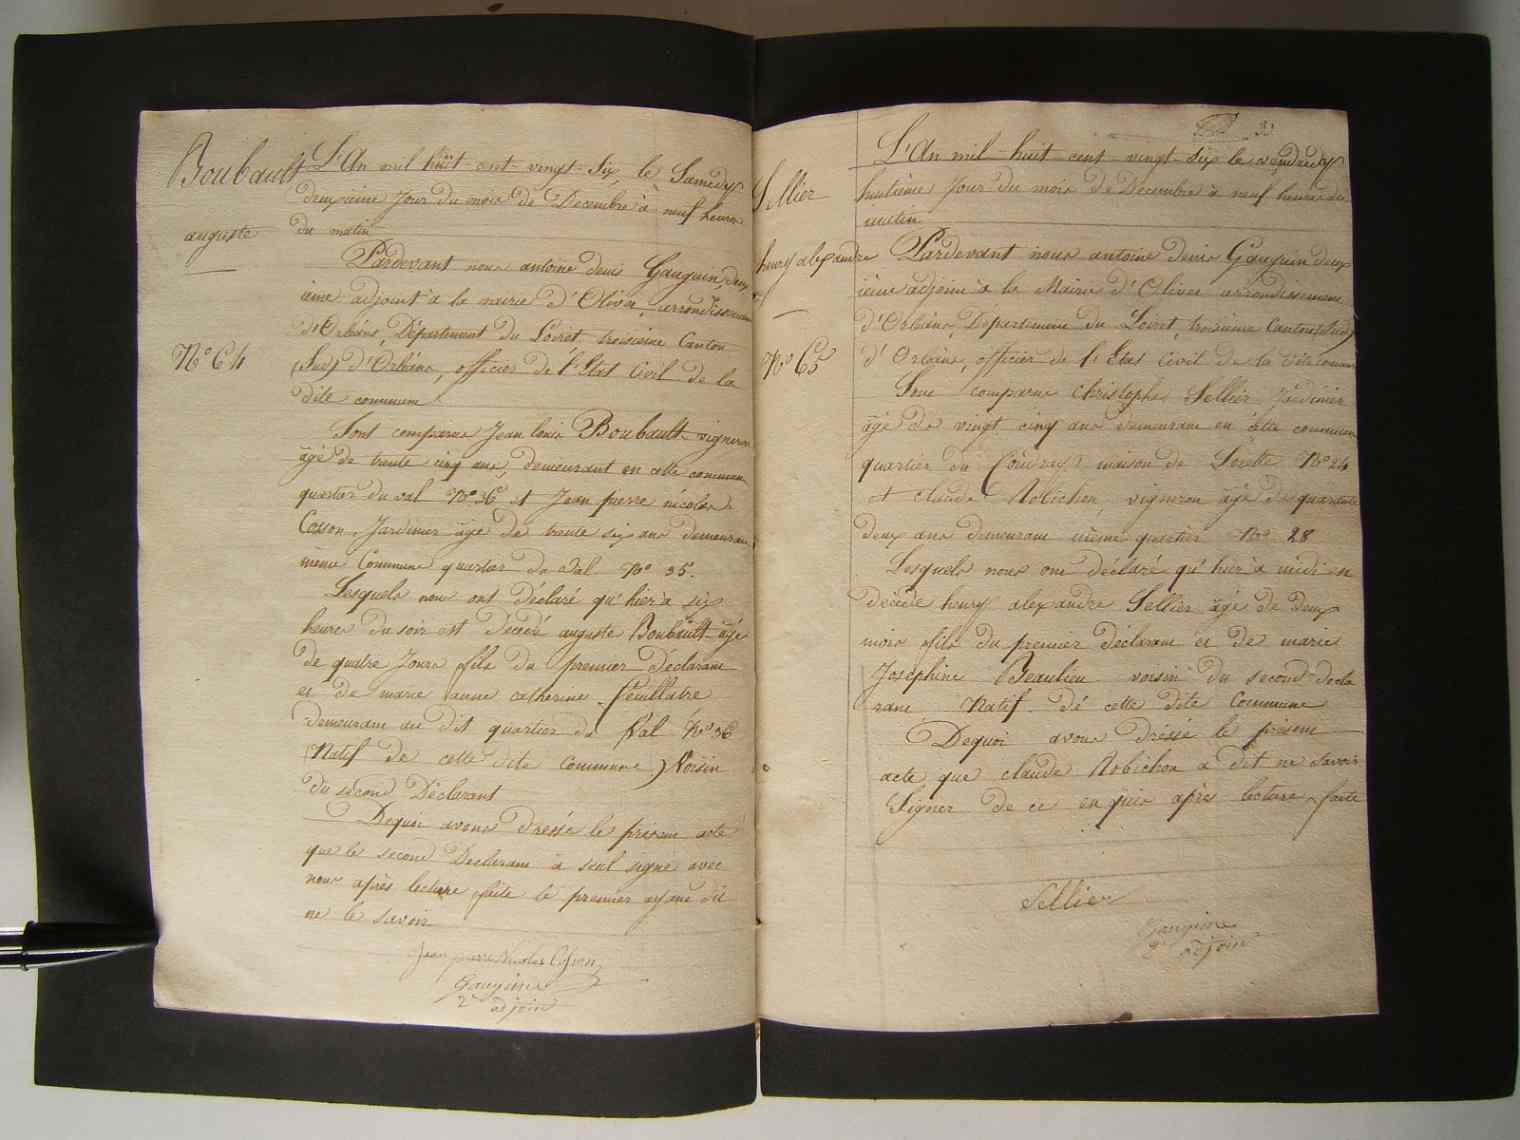 Boubault
auguste
N° 64
L'An mil huit cent vingt six, le Samedy
deuxième Jour du mois de Décembre à neuf heures
du matin
Pardevant nous antoine denis Gauguin, deux
ième adjoint à la mairie d'Olivet, arrondissement
d'Orléans, Département du Loiret, troisième Canton
(Sud) d'Orléans, officier de l'Etat Civil de la
dite commune
Sont comparus Jean louis Boubault vigneron
âgé de trente cinq ans, demeurant en cette commune
quartier du val N° 36 et Jean pierre nicolas
Cosson, Jardinier âgé de trente six ans demeurant
même Commune quartier du Val N° 35.
Lesquels nous ont déclaré qu'hier à six
heures du soir est décédé auguste Boubault âgé
de quatre Jours fils du premier Déclarant
et de marie anne catherine feuillatre
demeurant au dit quartier du Val N° 36
(Natif de cette dite Commune) Voisin
du second Déclarant
Dequoi avons dressé le présent acte
que le second Déclarant à seul signé avec
nous après lecture faite le premier ayant dit
ne le savoir
Jean pierre Nicolas Cosson
Gauguin
2e adjoint
Sellier
henry alexandre
N° 65
L'An mil huit cent vingt six le vendredy
huitième Jour du mois de Décembre à neuf heures du
matin
Pardevant nous antoine denis Gauguin deux
ième adjoint à la Mairie d'Olivet arrondissement
d'Orléans, Département du Loiret, troisième Canton (Sud)
d'Orléans, officier de l'Etat Civil de la dite commune
Sont comparus Christophe Sellier Jardinier
âgé de vingt cinq ans demeurant en cette commune
quartier du Couvray maison de Lorette N° 24
et claude Robichon, vigneron âgé de quarante
deux ans demeurant même quartier N° 28
Lesquels nous ont déclaré qu'hier à midi est
décédé henry alexandre Sellier âgé de deux
mois fils du premier déclarant et de marie
Josephine Beaulieu voisin du second décla
rant Natif de cette dite Commune
Dequoi avons dréssé le présent
acte que claude Robichon a dit ne savoir
Signer de ce enquis après lecture faite
Sellier
Gauguin
2e adjoint